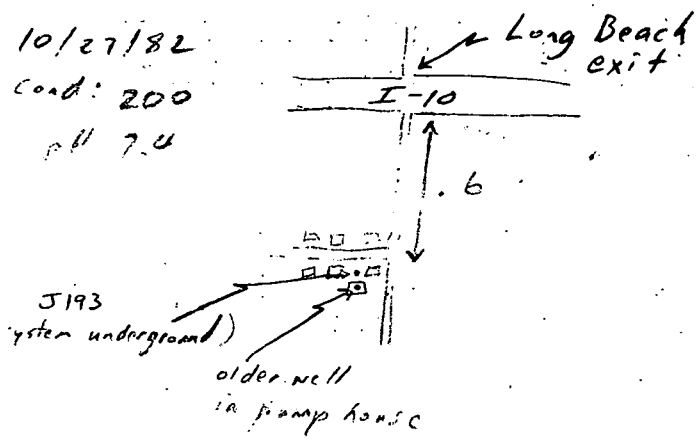 10/27/82
Cond: 200
pH 7.4
Long Beach
exit
I-10
.6
J193
ystem underground)
older well
in pump house